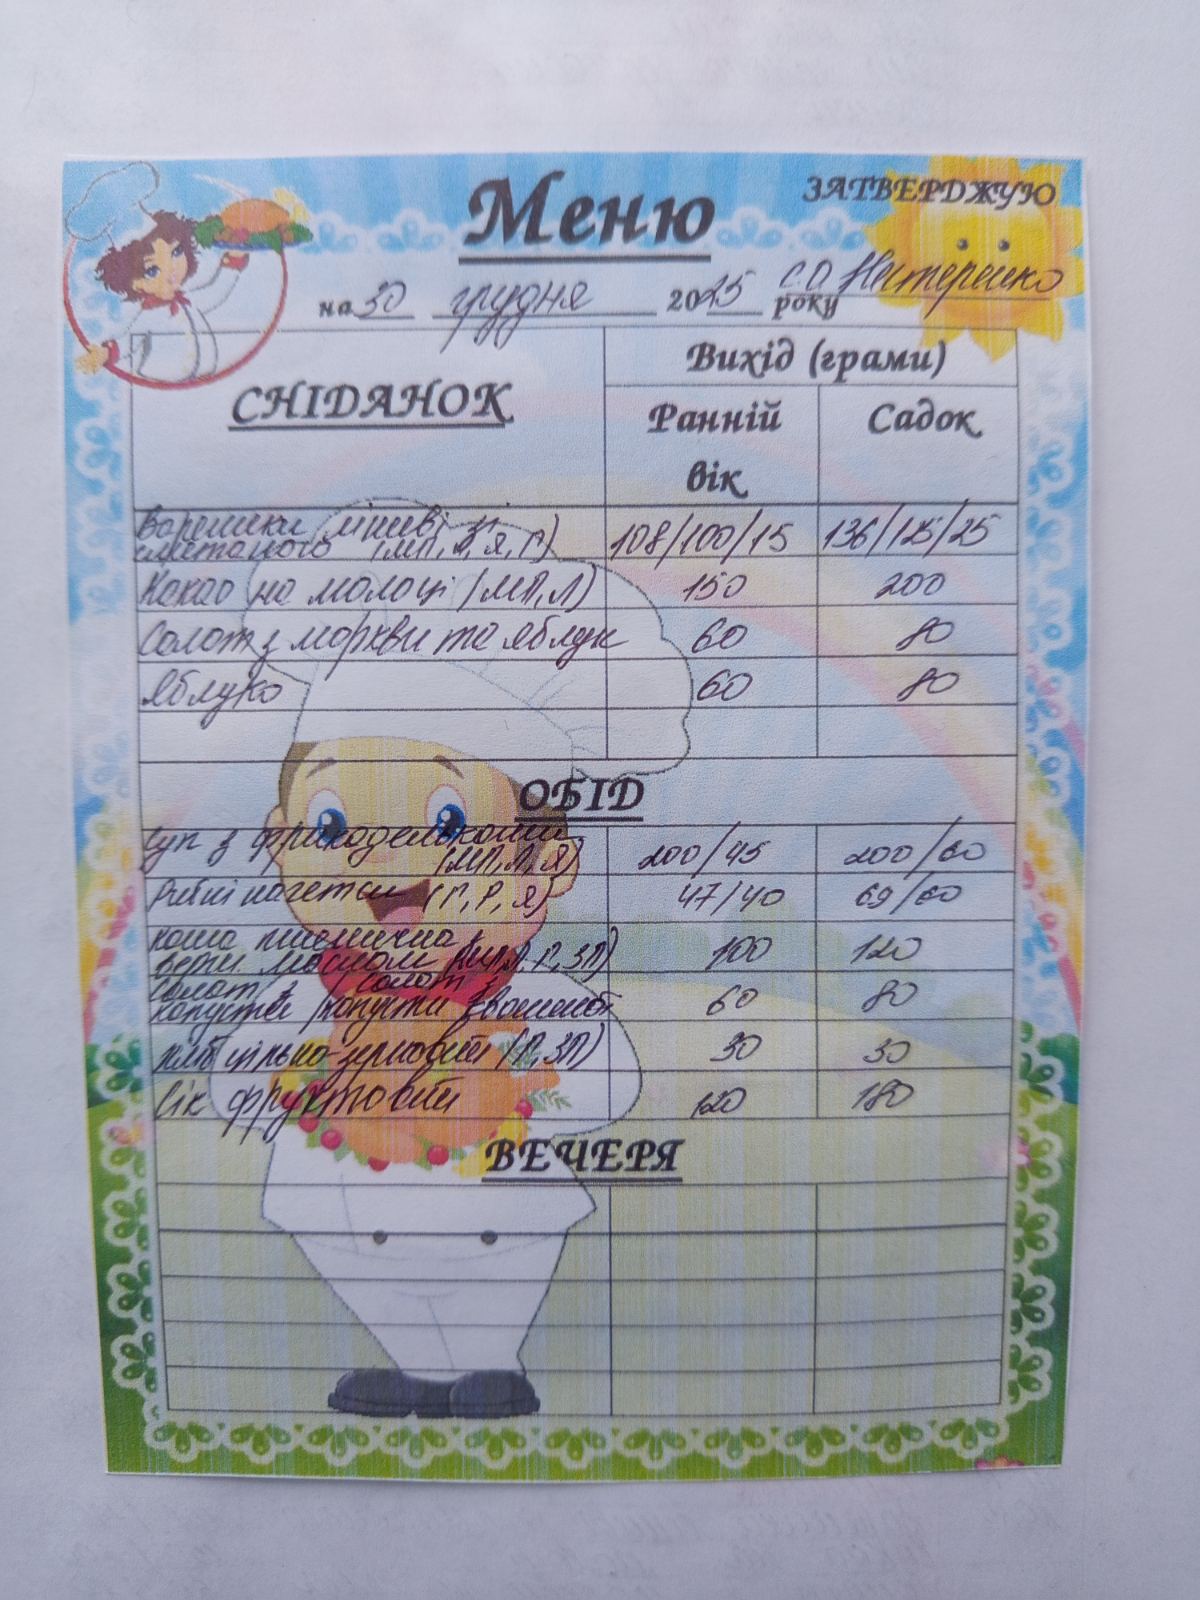 Меню
ЗАТВЕРДЖУЮ
на 30 грудня 2025 року С.О. Нестеренко
СНІДАНОК
Вихід (грами)
Ранній вік
Садок
Вареники ліниві зі
сметаною (МП, Л, Я, Г) 108/100/15 136/125/25
Какао на молоці (МП, Л) 150 200
Салат з моркви та яблук 60 80
Яблуко 60 80
ОБІД
Суп з фрикадельками
(МП, Л, Я) 200/45 200/60
Рибні нагетси (Г, Р, Я) 47/40 69/60
каша пшенична з
верш. маслом (МП, Л, Г, ЗП) 100 120
салат з / салат з
капусти / капусти квашеної 60 80
хліб цільно-зерновий (Г, ЗП) 30 30
Сік фруктовий 120 180
ВЕЧЕРЯ